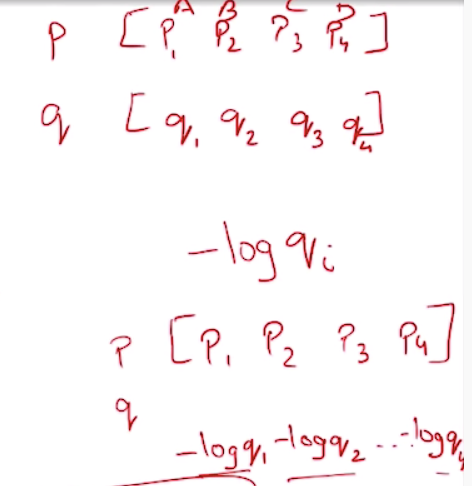 A B C D
p [P₁ P₂ P₃ P₄]
q [q₁ q₂ q₃ q₄]
-log qᵢ
P [P₁ P₂ P₃ P₄]
q
-log q₁ -log q₂ ... -log q₄